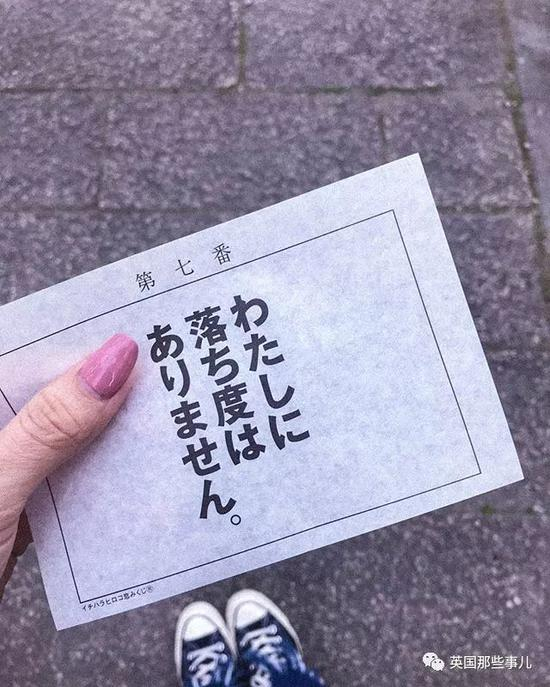 第七番
わたしに
落ち度は
ありません。
イチハラヒロコ恋みくじ®
英国那些事儿